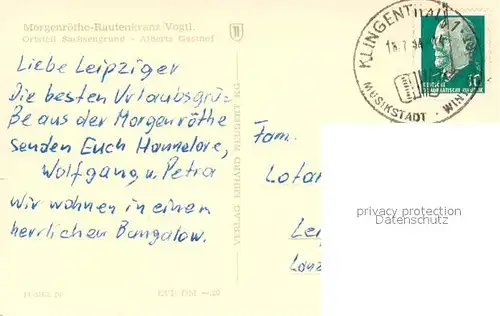 Morgenröthe-Rautenkranz/Vogtl.
Ortsteil Sachsengrund - Alberts Gasthof
Liebe Leipziger
Die besten Urlaubsgrü-
ße aus der Morgenröthe
senden Euch Hannelore,
Wolfgang, u. Petra
Wir wohnen in einem
herrlichen Bungalow.
VERLAG ERHARD NEUBERT KG
KLINGENTHAL
MUSIKSTADT · WIN
10
DEUTSCHE
DEMOKRATISCHE REPUBLIK
Fam.
Lotar
Lei
privacy protection
Datenschutz